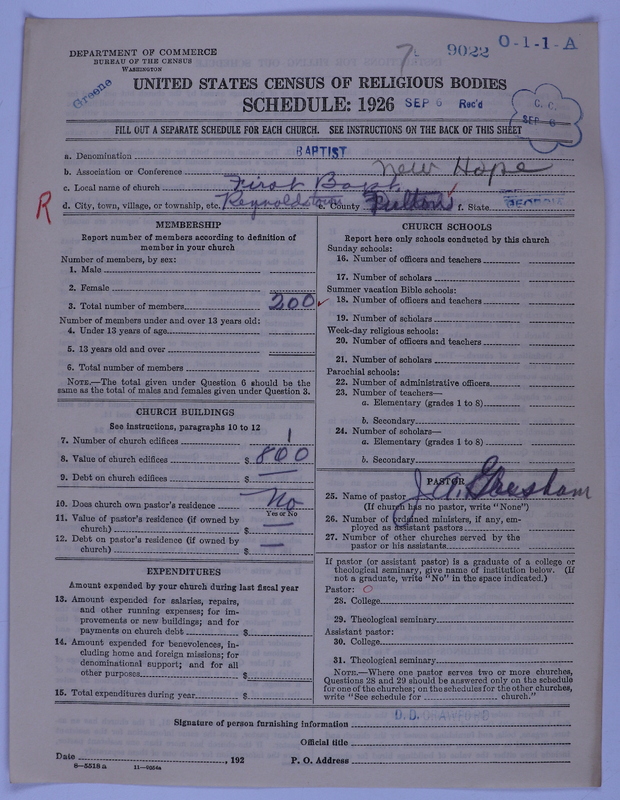 DEPARTMENT OF COMMERCE
BUREAU OF THE CENSUS
WASHINGTON
Greene
9022
O-1-1-A
UNITED STATES CENSUS OF RELIGIOUS BODIES
SCHEDULE: 1926
SEP 6 Rec'd
C. C.
SEP 6
FILL OUT A SEPARATE SCHEDULE FOR EACH CHURCH. SEE INSTRUCTIONS ON THE BACK OF THIS SHEET
a. Denomination BAPTIST
b. Association or Conference New Hope
c. Local name of church First Bapt
d. City, town, village, or township, etc. Reynoldstown e. County Fulton f. State GEORGIA
R
MEMBERSHIP
Report number of members according to definition of
member in your church
Number of members, by sex:
1. Male
2. Female
3. Total number of members 200
Number of members under and over 13 years old:
4. Under 13 years of age
5. 13 years old and over
6. Total number of members
NOTE.—The total given under Question 6 should be the
same as the total of males and females given under Question 3.
CHURCH BUILDINGS
See instructions, paragraphs 10 to 12
7. Number of church edifices 1
8. Value of church edifices $ 800
9. Debt on church edifices $ —
10. Does church own pastor's residence No
Yes or No
11. Value of pastor's residence (if owned by
church) $ —
12. Debt on pastor's residence (if owned by
church) $ —
EXPENDITURES
Amount expended by your church during last fiscal year
13. Amount expended for salaries, repairs,
and other running expenses; for im-
provements or new buildings; and for
payments on church debt $
14. Amount expended for benevolences, in-
cluding home and foreign missions; for
denominational support; and for all
other purposes $
15. Total expenditures during year $
CHURCH SCHOOLS
Report here only schools conducted by this church
Sunday schools:
16. Number of officers and teachers
17. Number of scholars
Summer vacation Bible schools:
18. Number of officers and teachers
19. Number of scholars
Week-day religious schools:
20. Number of officers and teachers
21. Number of scholars
Parochial schools:
22. Number of administrative officers
23. Number of teachers—
a. Elementary (grades 1 to 8)
b. Secondary
24. Number of scholars—
a. Elementary (grades 1 to 8)
b. Secondary
PASTOR
25. Name of pastor J. A. Gresham
(If church has no pastor, write "None")
26. Number of ordained ministers, if any, em-
ployed as assistant pastors
27. Number of other churches served by the
pastor or his assistants
If pastor (or assistant pastor) is a graduate of a college or
theological seminary, give name of institution below. (If
not a graduate, write "No" in the space indicated.)
Pastor: O
28. College
29. Theological seminary
Assistant pastor:
30. College
31. Theological seminary
NOTE.—Where one pastor serves two or more churches,
Questions 28 and 29 should be answered only on the schedule
for one of the churches; on the schedules for the other churches,
write "See schedule for church."
D. D. CRAWFORD
Signature of person furnishing information
Official title
Date , 192 P. O. Address
8—5518 a 11—9054a